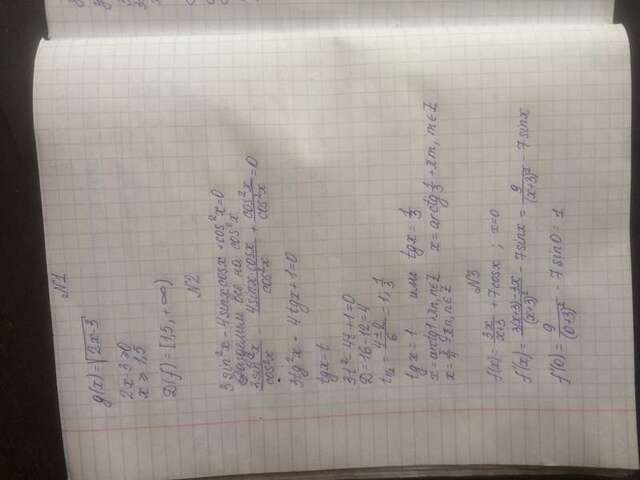 №1
g(x) = √(2x-3)
2x-3 ≥ 0
x ≥ 1,5
D(f) = [1,5; +∞)
№2
3 sin²x - 4 sinx cosx + cos²x = 0
разделим все на cos²x
3 sin²x/cos²x - 4 sinx cosx/cos²x + cos²x/cos²x = 0
3tg²x - 4tgx + 1 = 0
tgx = t
3t² - 4t + 1 = 0
D = 16 - 12 = 4
t₁,₂ = (4 ± 2)/6 = 1; 1/3
tg x = 1 или tgx = 1/3
x = arctg 1 + πn, n∈Z x = arctg 1/3 + πm, m∈Z
x = π/4 + πn, n∈Z
№3
f(x) = 3x/(x+3) + 7cosx ; x=0
f'(x) = (3(x+3) - 3x)/(x+3)² - 7sinx = 9/(x+3)² - 7sinx
f'(0) = 9/(0+3)² - 7 sin0 = 1